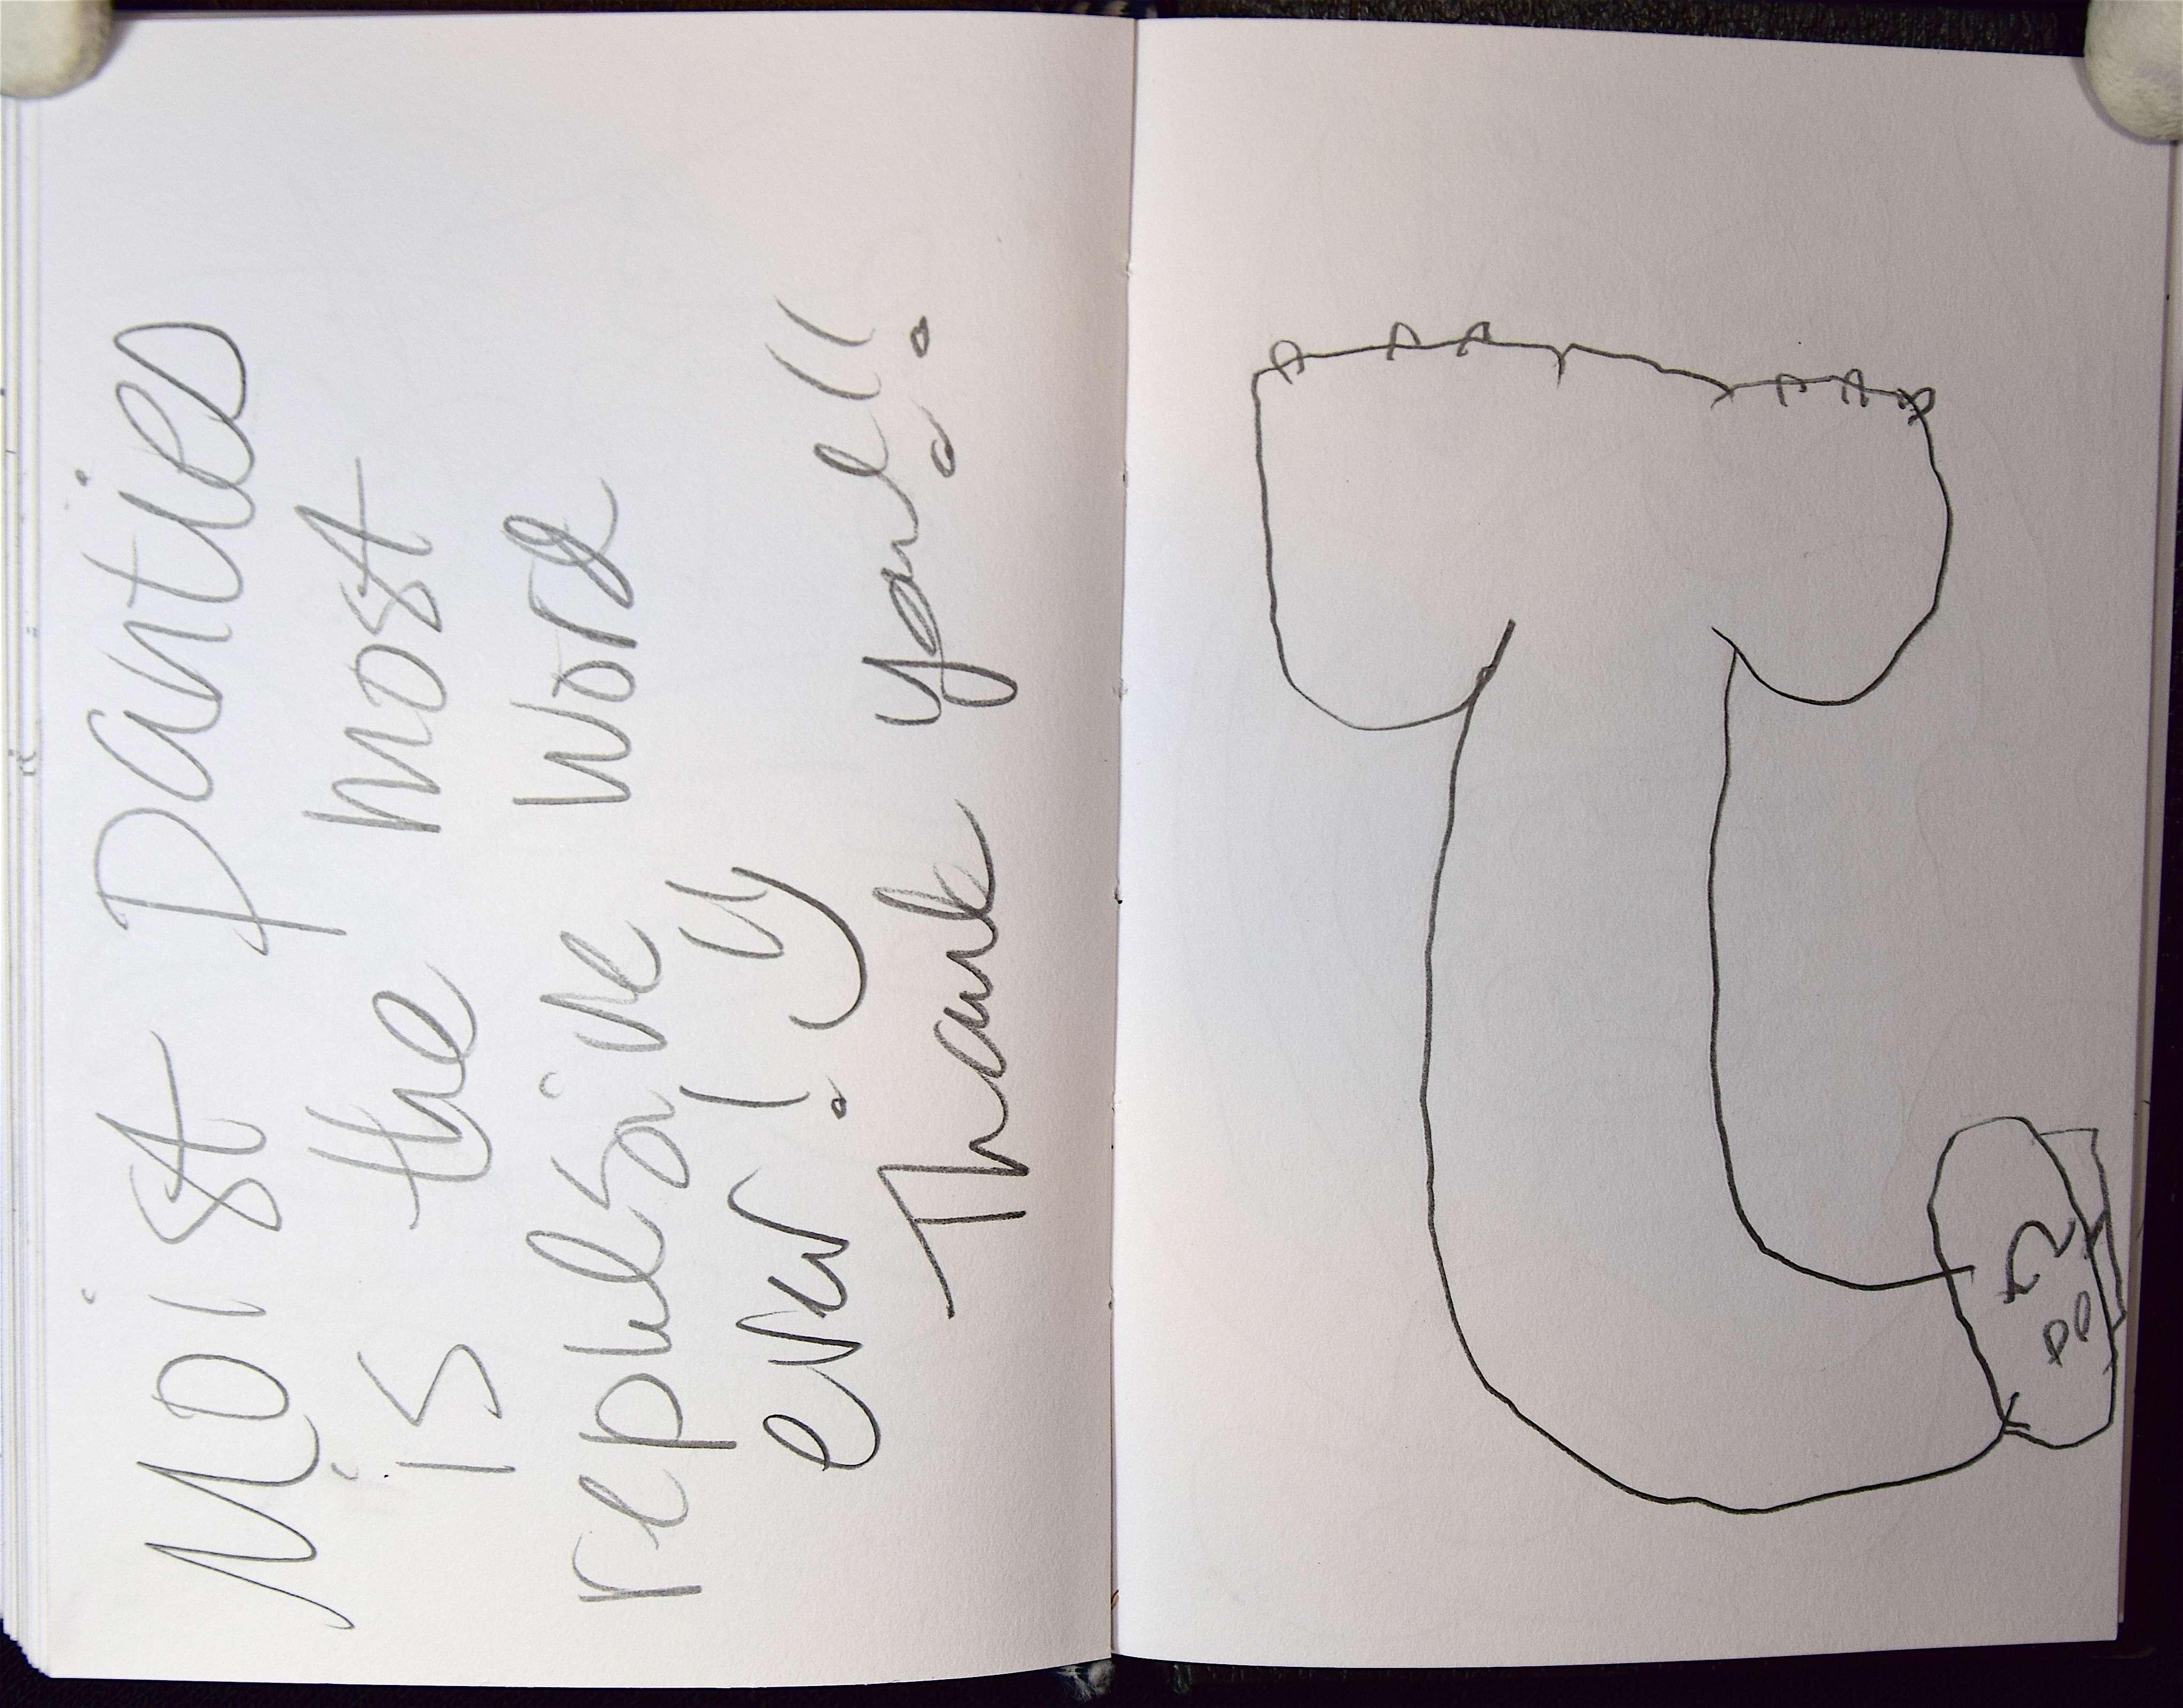 Moist panties
is the most
repulsive word
ever! y
Thank you!!